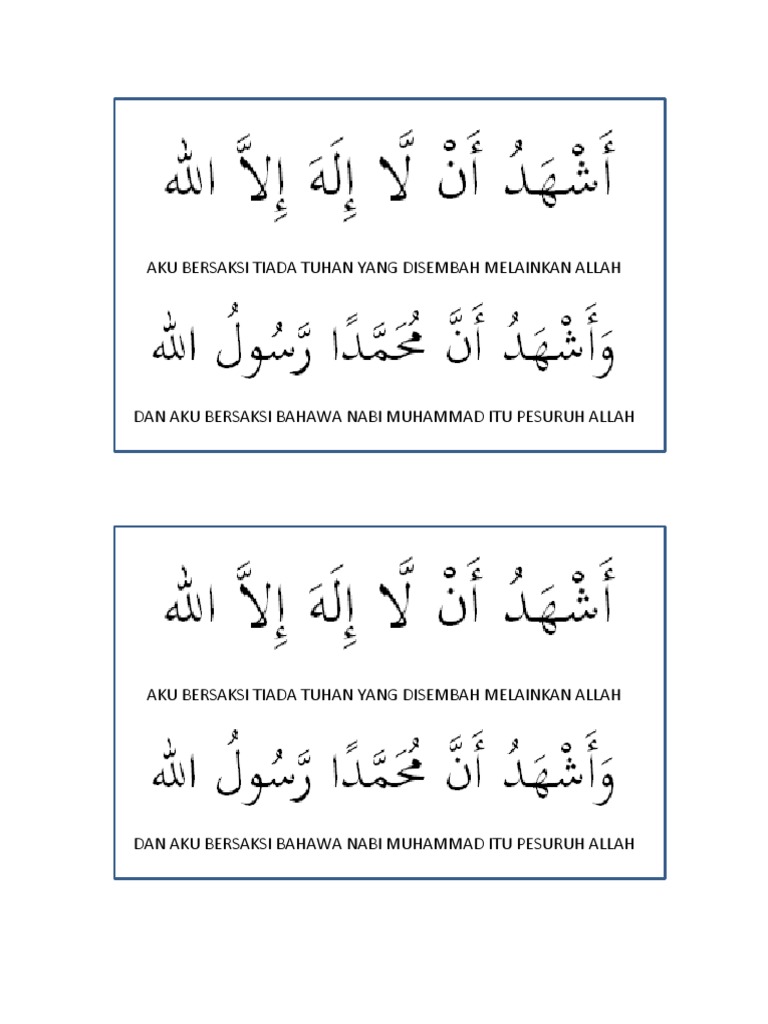 أَشْهَدُ أَنْ لَّا إِلَهَ إِلاَّ الله
AKU BERSAKSI TIADA TUHAN YANG DISEMBAH MELAINKAN ALLAH
وَأَشْهَدُ أَنَّ مُحَمَّدًا رَّسُولُ الله
DAN AKU BERSAKSI BAHAWA NABI MUHAMMAD ITU PESURUH ALLAH
أَشْهَدُ أَنْ لَّا إِلَهَ إِلاَّ الله
AKU BERSAKSI TIADA TUHAN YANG DISEMBAH MELAINKAN ALLAH
وَأَشْهَدُ أَنَّ مُحَمَّدًا رَّسُولُ الله
DAN AKU BERSAKSI BAHAWA NABI MUHAMMAD ITU PESURUH ALLAH